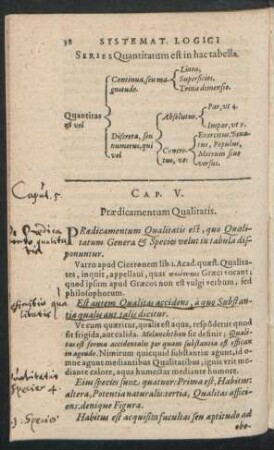 38 SYSTEMAT. LOGICI
SERIES Quantitatum est in hac tabella.
Quantitas
est vel
Continua, seu mag-
nitudo.
Linea,
Superficies,
Trina dimensio.
Discreta, seu
numerus, qui
vel
Absolutus.
Par, ut 4.
Impar, ut 7.
Concre-
tus, ut:
Exercitus, Sena-
tus, Populus,
Metrum sive
versus.
Caput. 5.
CAP. V.
Prædicamentum Qualitatis.
PRædicamentum Qualitatis est, quo Quali-
tatum Genera & Species velut in tabula di-
ponuntur.
Varro apud Ciceronem lib. 1. Acad. quæst. Qualita-
tes, inquit, appellavi, quas Græci vocant;
quod ipsum apud Græcos non est vulgi verbum, sed
philosophorum.
Est autem Qualitas accidens, à quo Substan-
tia qualis aut talis dicitur.
Ut cum quæritur, qualis est aqua, respondetur quod
sit frigida, aut calida. Melanchthon sic definit; Quali-
tas est forma accidentalis per quam substantia est efficax
in agendo. Nimirum quicquid substantiæ agunt, id o-
mne agunt mediantibus Qualitatibus; ignis urit media-
te calore, aqua humectat mediante humiditate.
Ejus species sunt quatuor: Prima est, Habitus:
altera, Potentia naturalis: tertia, Qualitas affici-
ens, denique Figura.
Species 4.
Habitus est acquisita facultas seu aptitudo ad
1. Species
obe-